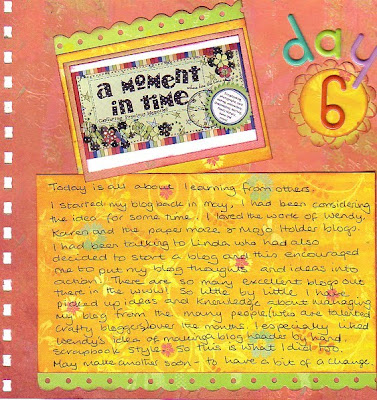 day
6
a moment
in time
Capturing Precious Memories
Today is all about learning from others.
I started my blog back in May, I had been considering
the idea for some time. I loved the work of Wendy,
Karen and the paper maze & Mojo Holder blogs.
I had been talking to Linda who had also
decided to start a blog and this encouraged
me to put my blog thoughts and ideas into
action! There are so many excellent blogs out
there in the world! So little by little I have
picked up ideas and knowledge about managing
my blog from the many people who are talented
crafty bloggers over the months. I especially liked
Wendy's idea of making a blog header by hand,
scrapbook style, so this is what I did too.
May make another soon - to have a bit of a change